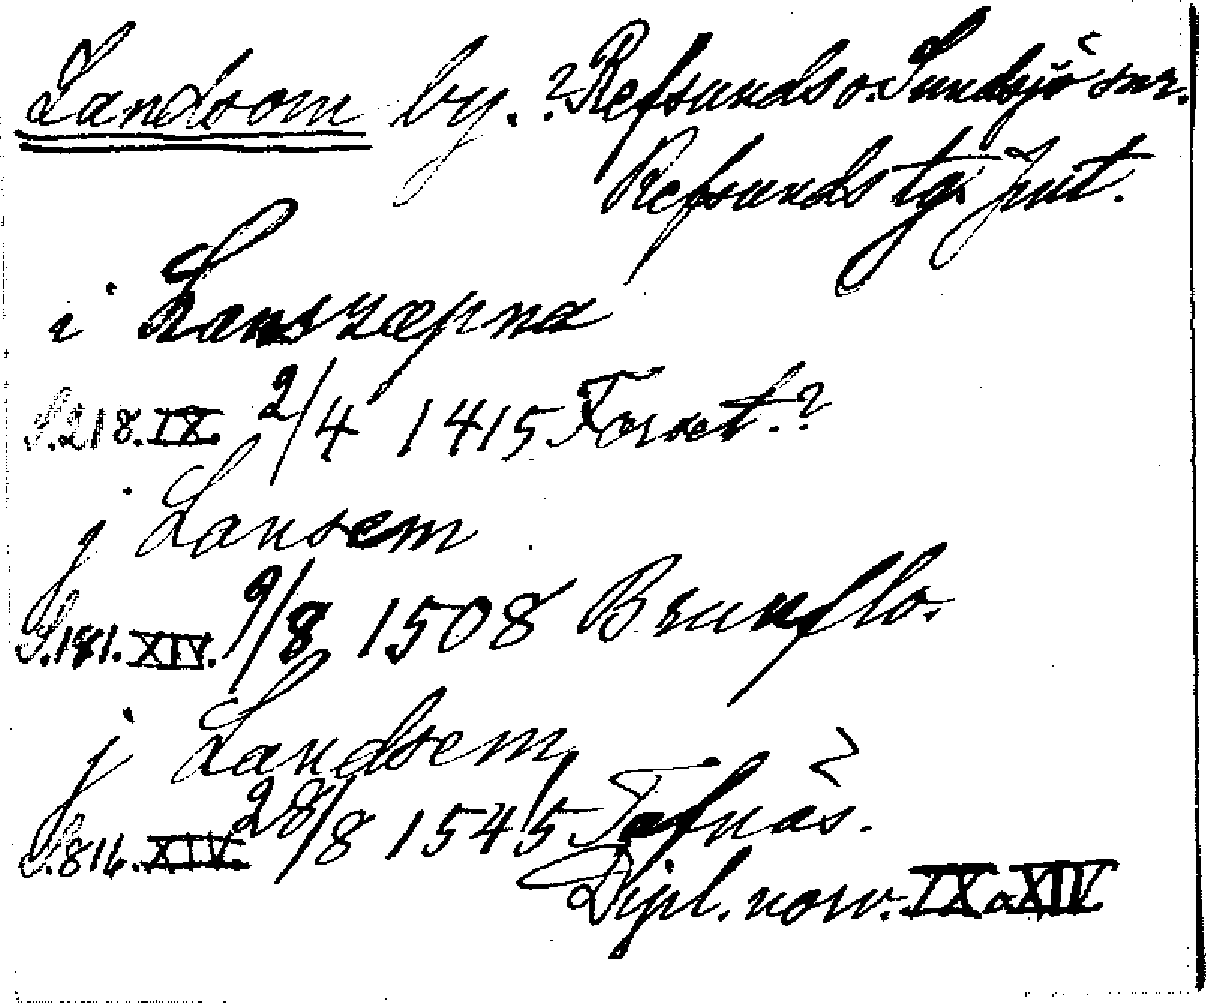 Landsom by. ? Refsunds o. Sundsjö snr.
Refsunds tg. Jmt.
i Lanszæpna
S. 218. IX. 2/4 1415 Forset. ?
j Lansem
S. 181. XIV. 9/8 1508 Brunflo.
j Landsem
S. 816. XIV. 28/8 1545 Tafnäs.
Dipl. norv. IX o XIV